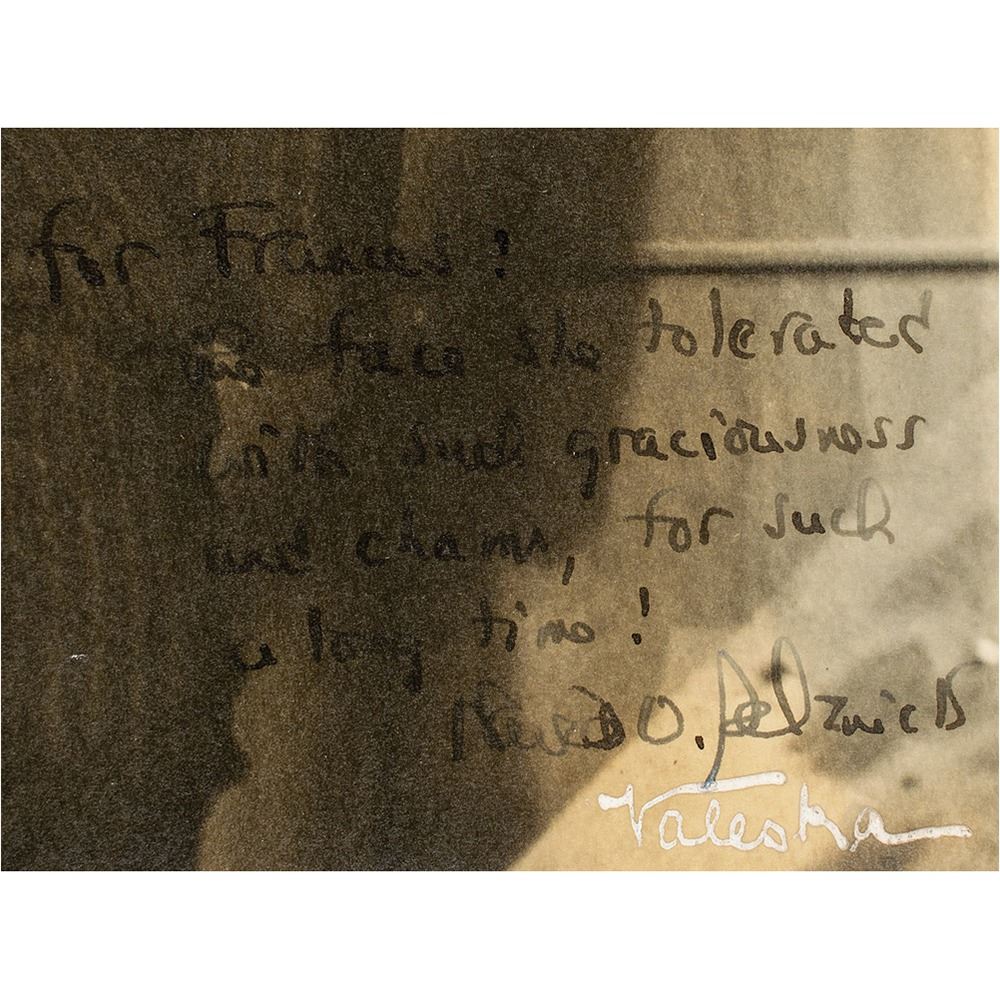 for Frances!
the face she tolerated
with such graciousness
and charm, for such
a long time!
David O. Selznick
Valeska